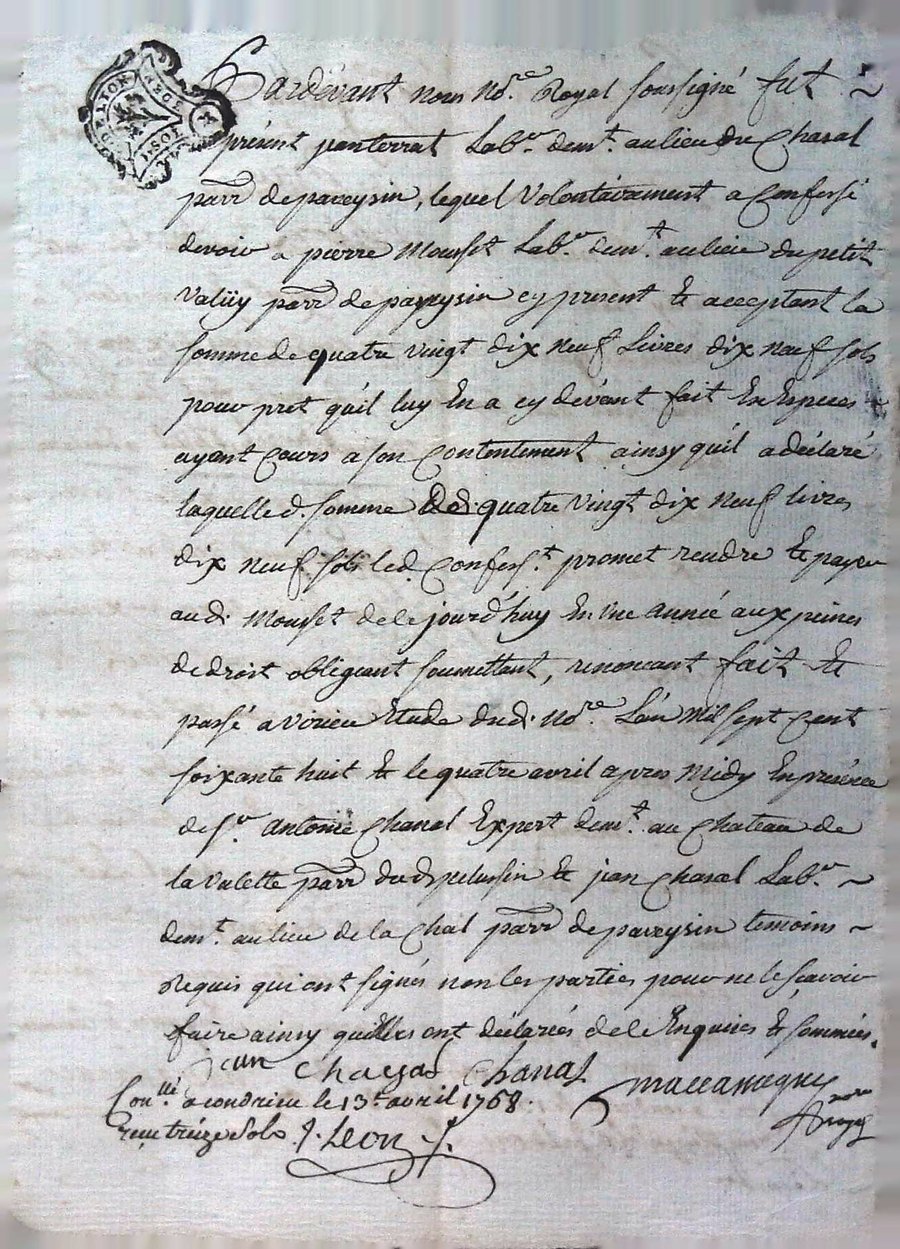 Pardevant nous No.re Royal soussigné fut
présent Lab.r dem.t au lieu du Chaval
parr de paveysin, lequel Volontairament a Confessé
devoir a pierre Mousset Lab.r dem.t au lieu du petit
Valüy parr de paveysin cy present & acceptant la
somme de quatre vingt dix neuf Livres dix neuf sols
pour pret qu'il luy En a cy dévant fait En Especes
ayant Cours a son Contentement ainsy qu'il a déclaré
laquelle d. somme de quatre vingt dix neuf livres
dix neuf sols led. Confess.t promet rendre & payer
aud. Mousset de ce jourd'huy En une année aux peines
de droit obligeant soumettant, renoncant fait &
passé a Étude dud. No.re L'an Mil sept Cent
soixante huit & le quatre avril apres Midy En présence
de S.r antoine Chanal Expert dem.t au Chateau de
la Valette parr dud pelussin & jean Chaval Lab.r
dem.t au lieu de la Chal parr de paveysin temoins
Requis qui ont signés non les parties pour ne le sçavoir
faire ainsy quelles ont déclarées de ce Enquises & sommées.
jean Chaval Chanal
Con.llé a condrieu le 13.e avril 1768.
reçu treize sols J. Leon